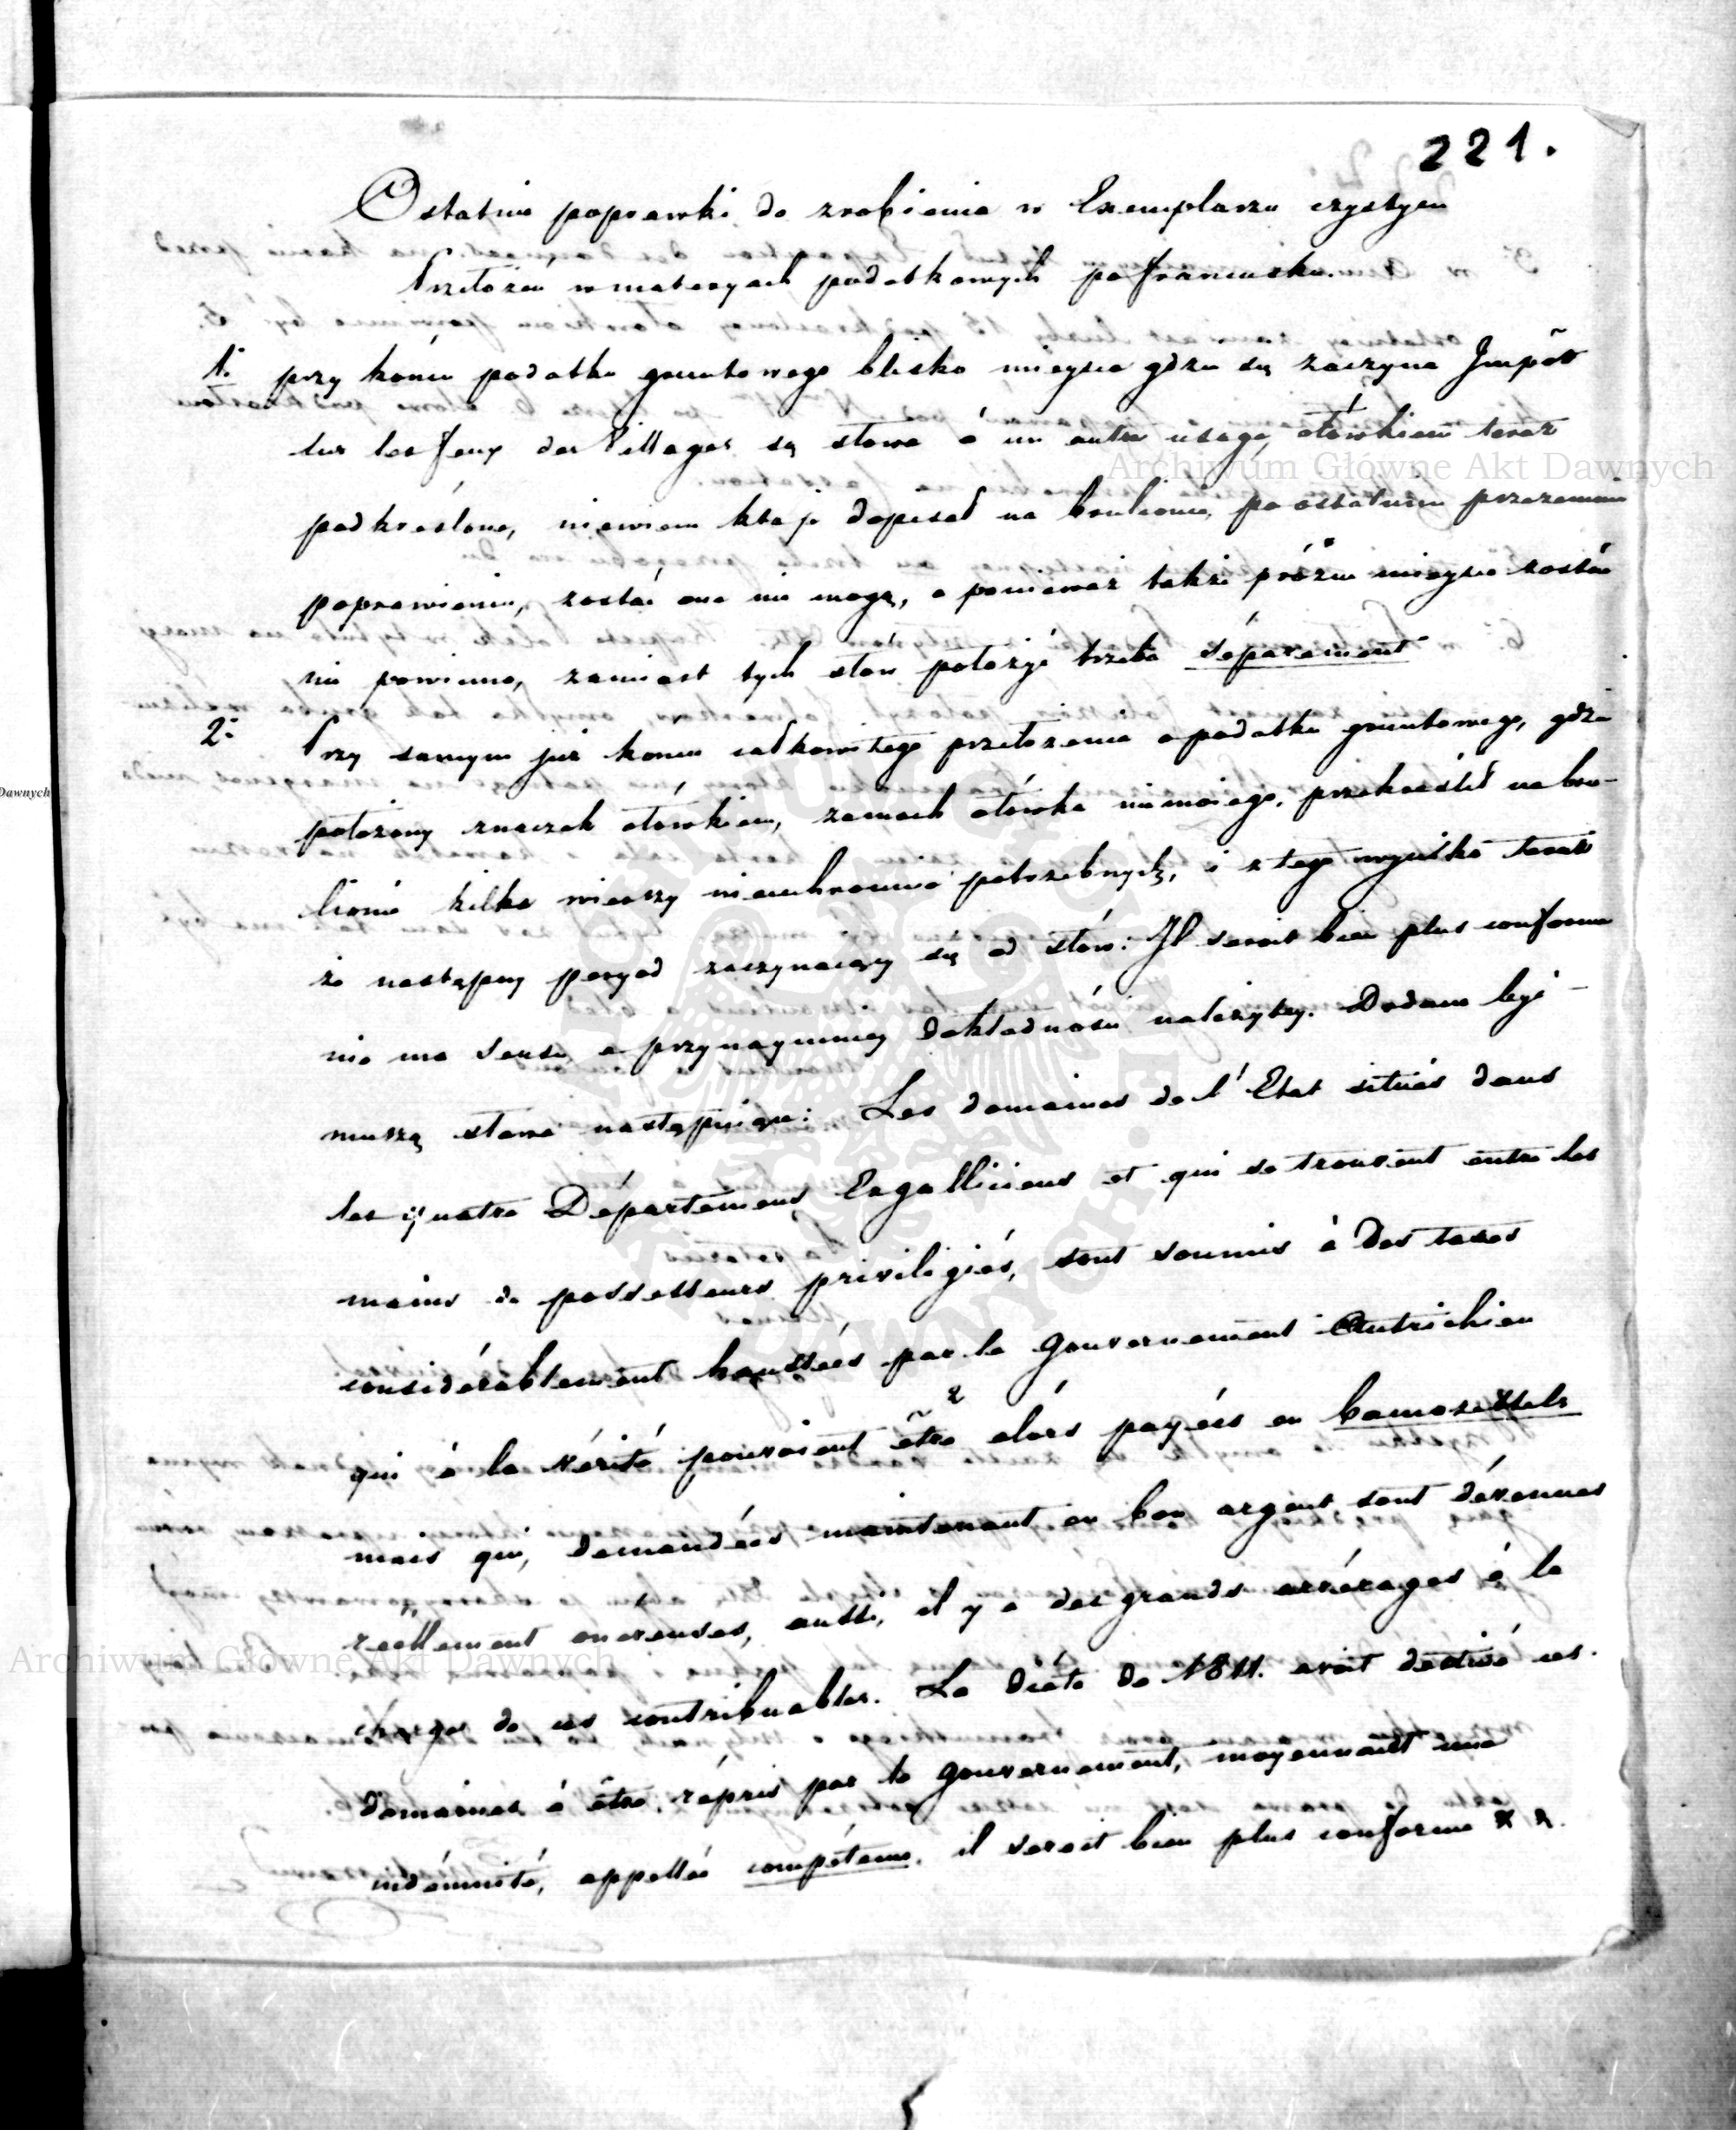 221.
Ostatnie poprawki do zrobienia w Exemplarzu czystym
Przełożeń w materyach podatkowych po francusku.
1. przy końcu podatku gruntowego blisko mieysca gdzie się zaczyna Impôt
sur les feux des Villages są słowa à un autre usage, ołówkiem teraz
podkreślone, niewiem kto je dopisał na brulionie, po ostatnim przezemnie
poprawieniu, zostać one nie mogą, a ponieważ także próżne mieysce zostać
nie powinno, zamiast tych słów położyć trzeba séparement
2. Przy samym już końcu całkowitego przełożenia o podatku gruntowego, gdzie
położony znaczek ołówkiem, zamach ołówka niemoiego, przekreślił na bru-
lionie kilka wierszy nieuchronnie potrzebnych, i z tego wynikło teraz
że następny peryod zaczynaiący się od słów: Il seroit bien plus conforme
nie ma sensu, a przynaymniey dokładności należytey. Dodane być
muszą słowa następuiące: Les domaines de l'Etat situés dans
les quatre Départemens Exgalliciens et qui se trouvent entre les
mains de possesseurs privilegiés, sont soumis à des taxes
considérablement haussées par le Gouvernement Autrichien
qui à la vérité pouvoient être alors payées en bancozettels
mais qui, demandées maintenant en bon argent sont dévenues
réellement onereuses, aussi, il y a des grands arrérages à la
charge de ces contribuables. La diéte de 1811. avoit destiné ces
domaines à être répris par le gouvernement, moyennant une
indémnité, appellée compétence. il seroit bien plus conforme
Archiwum Główne Akt Dawnych
Archiwum Główne Akt Dawnych
Dawnych